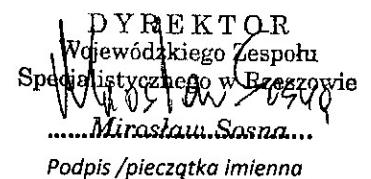 DYREKTOR
Wojewódzkiego Zespołu
Specjalistycznego w Rzeszowie
Mirosław Sosna
......Mirosław Sosna....
Podpis /pieczątka imienna